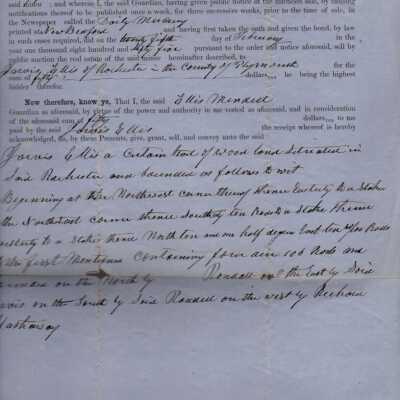 said sales ; and whereas I, the said Guardian, having given public notice of the intended sale, by causing
notifications thereof to be published once a week, for three successive weeks, prior to the time of sale, in
the Newspaper called the Daily Mercury
printed at New Bedford and having first taken the oath and given the bond, by law
in such cases required, did on the twenty fifth day of February in the
year one thousand eight hundred and sixty five pursuant to the order and notice aforesaid, sell by
public auction the real estate of the said hereinafter described, to
Jarvis Ellis of Rochester in the County of Plymouth for the
sum of fifty dollars, he being the highest
bidder therefor.
Now therefore, know ye, That I, the said Ellis Mendell
Guardian as aforesaid, by virtue of the power and authority in me vested as aforesaid, and in consideration
of the aforesaid sum of fifty dollars, to me
paid by the said Jarvis Ellis the receipt whereof is hereby
acknowledged, do, by these Presents, give, grant, sell, and convey unto the said
Jarvis Ellis a certain tract of wood land situated in
said Rochester and bounded as follows to wit
Beginning at the Northwest corner thereof thence Easterly to a Stake
the Northeast corner thence southerly ten Rods to a Stake thence
westerly to a Stake thence North ten and one half degrees East ten Rods
first Mentioned containing 106 Rods and
on the North by Randall on the East by Said
on the South by Said Randall on the west by
Hathaway